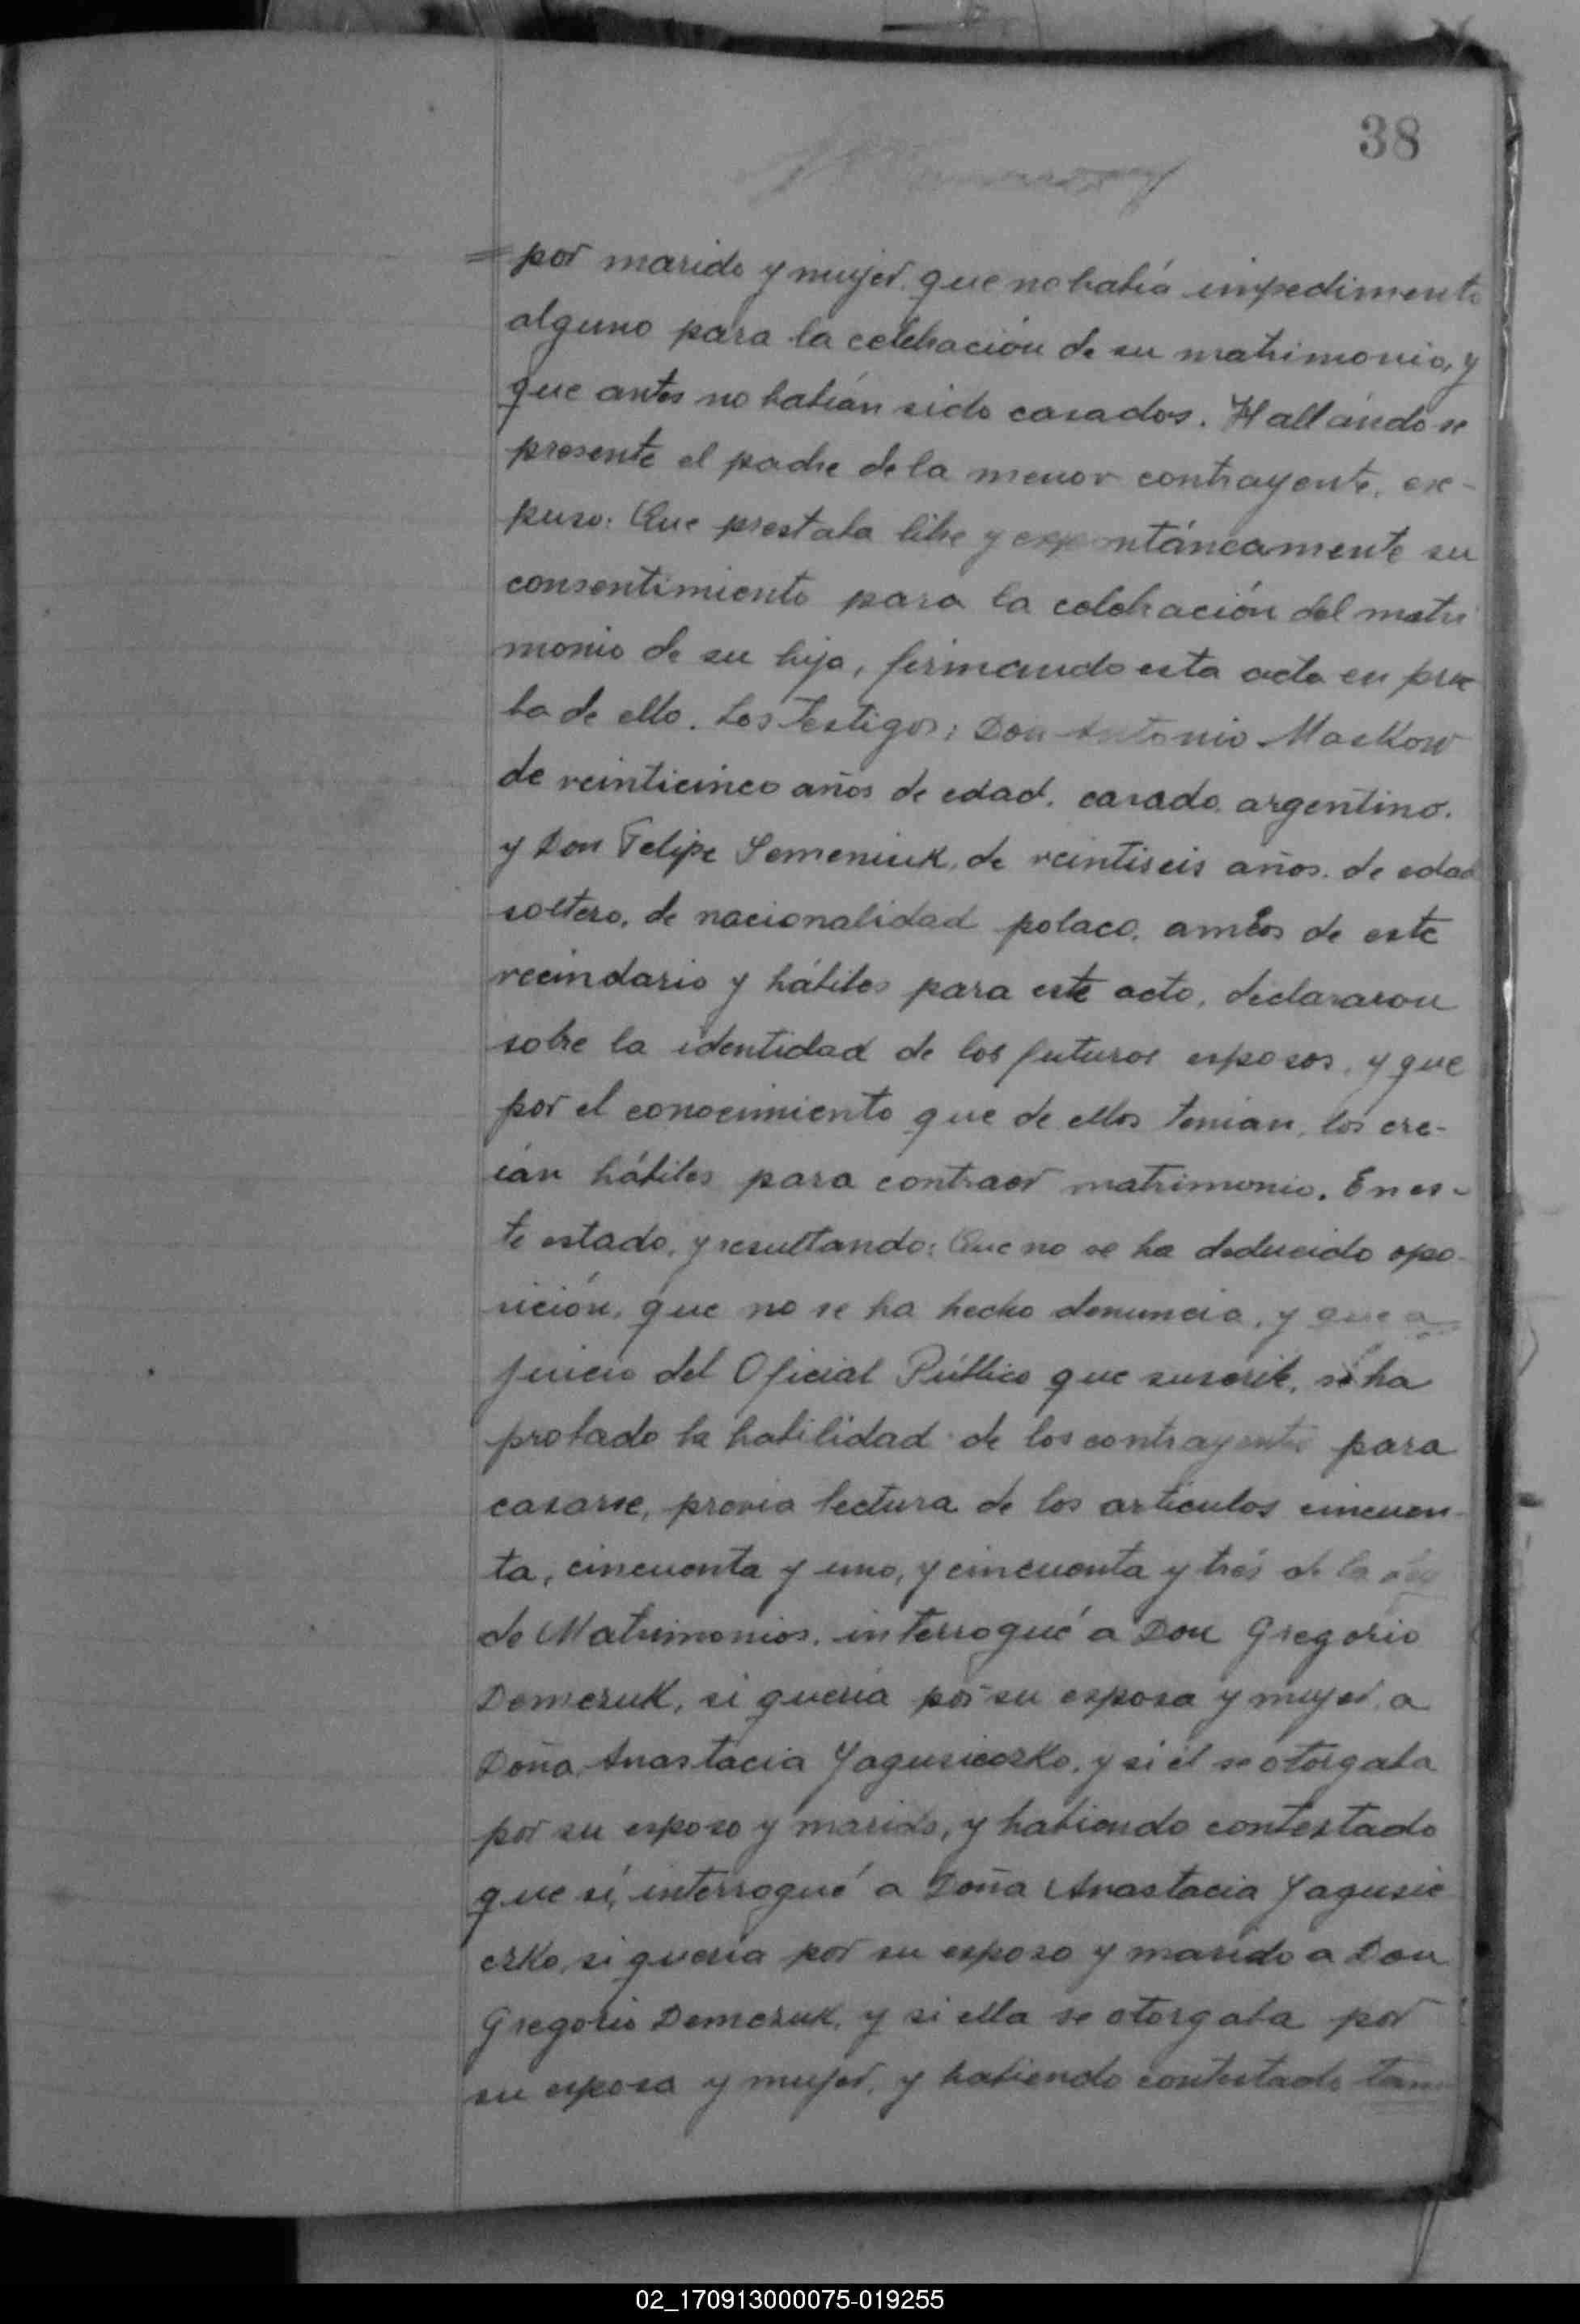 38
= por marido y mujer, que no había impedimento
alguno para la celebración de su matrimonio, y
que antes no habían sido casados. Hallándose
presente el padre de la menor contrayente, ex-
puso: Que prestaba libre y expontáneamente su
consentimiento para la celebración del matri
monio de su hija, firmando esta acta en prue
ba de ello. Los testigos: Don Antonio Maskow
de veinticinco años de edad, casado, argentino,
y Don Felipe Semeniuk, de veintiseis años de edad
soltero, de nacionalidad polaco, ambos de este
vecindario y hábiles para este acto, declararon
sobre la identidad de los futuros esposos, y que
por el conocimiento que de ellos tenían, los cre-
ían hábiles para contraer matrimonio. En es-
te estado, y resultando: Que no se ha deducido opo-
sición, que no se ha hecho denuncia, y que a
juicio del Oficial Público que suscribe, se ha
probado la habilidad de los contrayentes para
casarse, previa lectura de los artículos cincuen-
ta, cincuenta y uno, y cincuenta y trés de la Ley
de Matrimonios, interrogué a Don Gregorio
Demczuk, si quería por su esposa y mujer, a
Doña Anastacia Yagusieczko, y si él se otorgaba
por su esposo y marido, y habiendo contestado
que sí, interrogué a Doña Anastacia Yagusie
czko, si quería por su esposo y marido a Don
Gregorio Demczuk, y si ella se otorgaba por
su esposa y mujer, y habiendo contestado tam
02_170913000075-019255